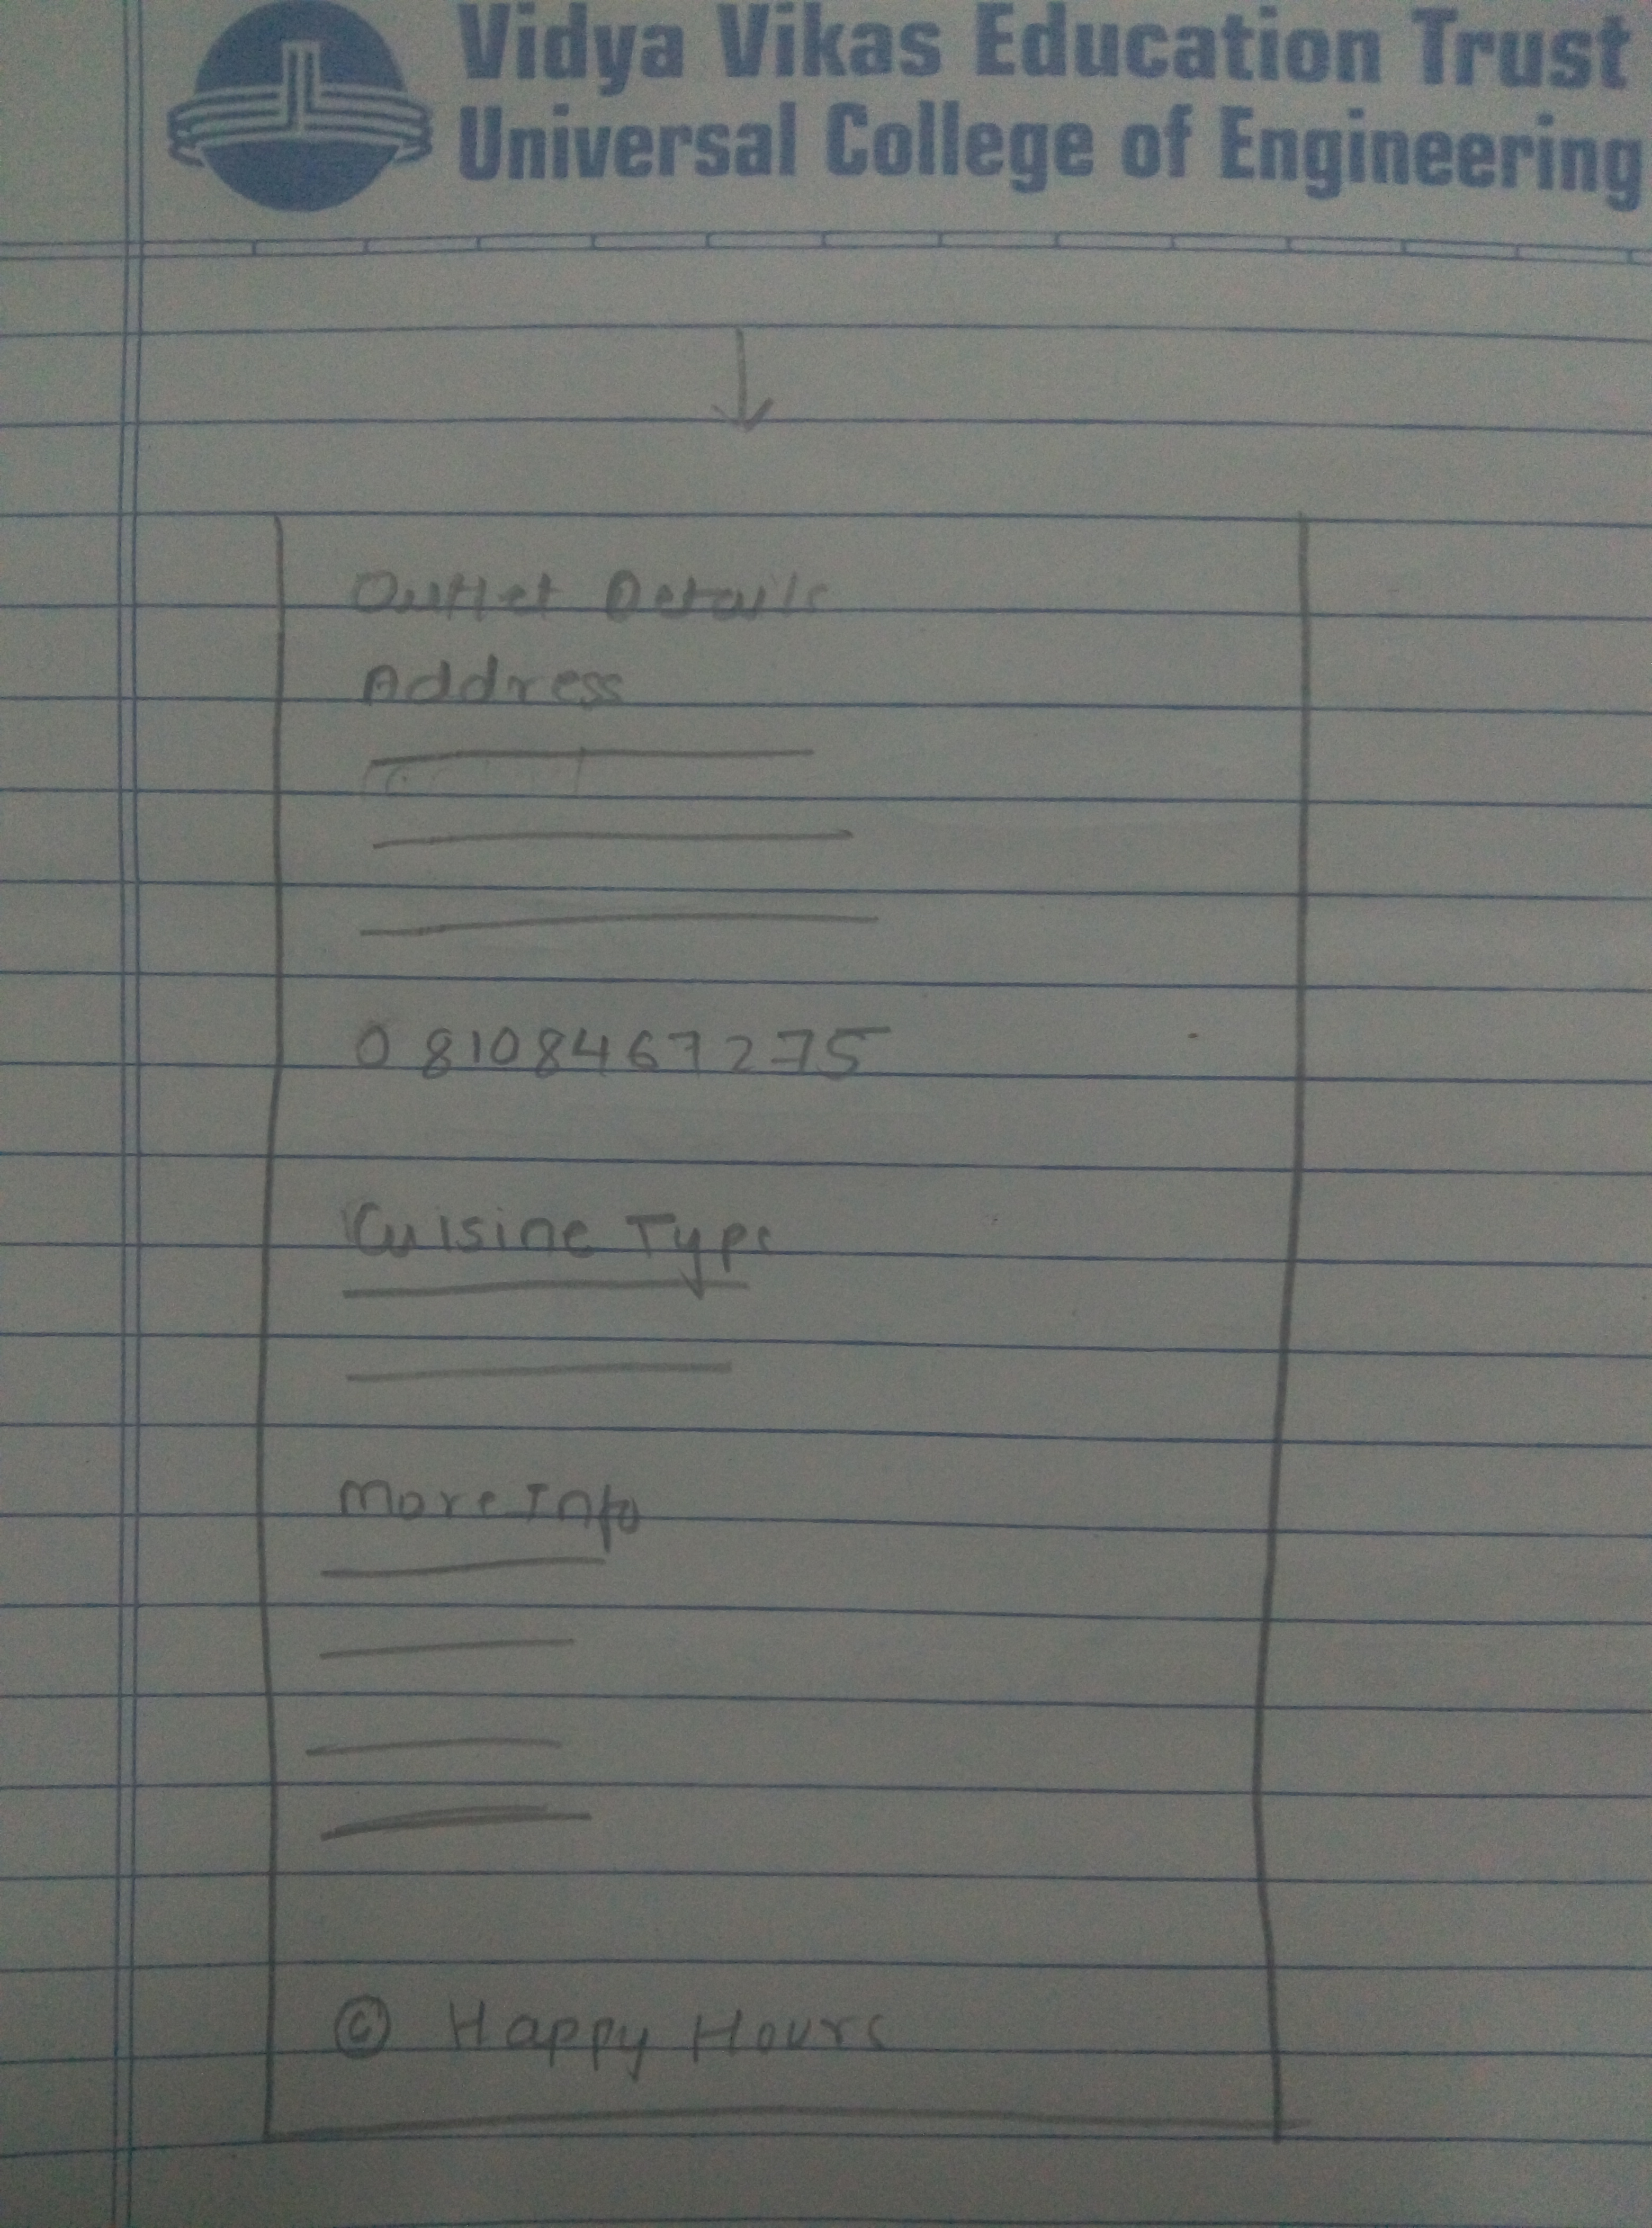 Vidya Vikas Education Trust
Universal College of Engineering
Outlet Details
Address
08108467275
Cuisine Type
More Info
© Happy Hours